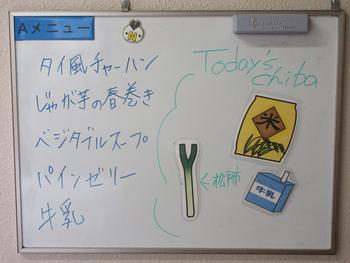 Aメニュー
タイ風チャーハン
じゃが芋の春巻き
ベジタブルスープ
パインゼリー
牛乳
Today's
chiba
米
牛乳